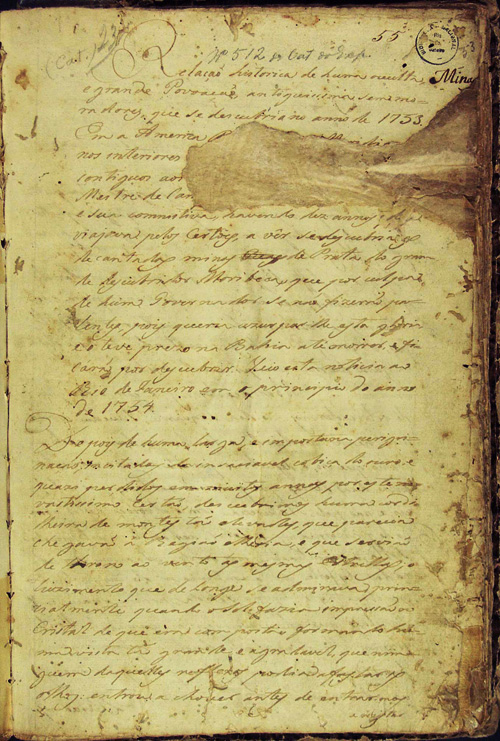 55
(Cat. 123
Nº 512 do Cat. do
Relação historica de huma occulta
e grande Povoação antiquissima sem mo-
radores, que se descubriu no anno de 1753
Minas
Em a America
nos interiores
contiguos aos
Mestre de Can
e sua comitiva, havendo dez annos, q̃
viajava pelos Certoẽs, a ver se descubria
decantadas minas de Prata do gran
de descubridor Moribeca, que por culpa
de hum Governador se naõ fizeraõ pa-
tentes, pois queria usurparlhe esta gloria
e o teve prezo na Bahia athe morrer, e fi
caraõ por descubrir. Veio esta noticia ao
Rio de Janeiro em o principio do anno
de 1754.
Depois de huma larga, e importuna perigri-
naçaõ, incitados da insaciavel cobiça do ouro, e
quazi perdidos em muitos annos por este vas-
tissimo Certaõ, descubrimos huma cordi-
lheira de montes taõ elevados, que parecia
chegavaõ á Regiaõ etherea, e que serviaõ
de throno ao vento, ás mesmas Estrellas; o
luzimento que de longe se admirava, prin
cipalmente quando o Sol fazia impressaõ ao
Cristal de que era composta formando hu
ma vista taõ grande e agradavel, que nin
guem daquelles reflexos podia afastar os
olhos: entrou a chover antes de entrarmos